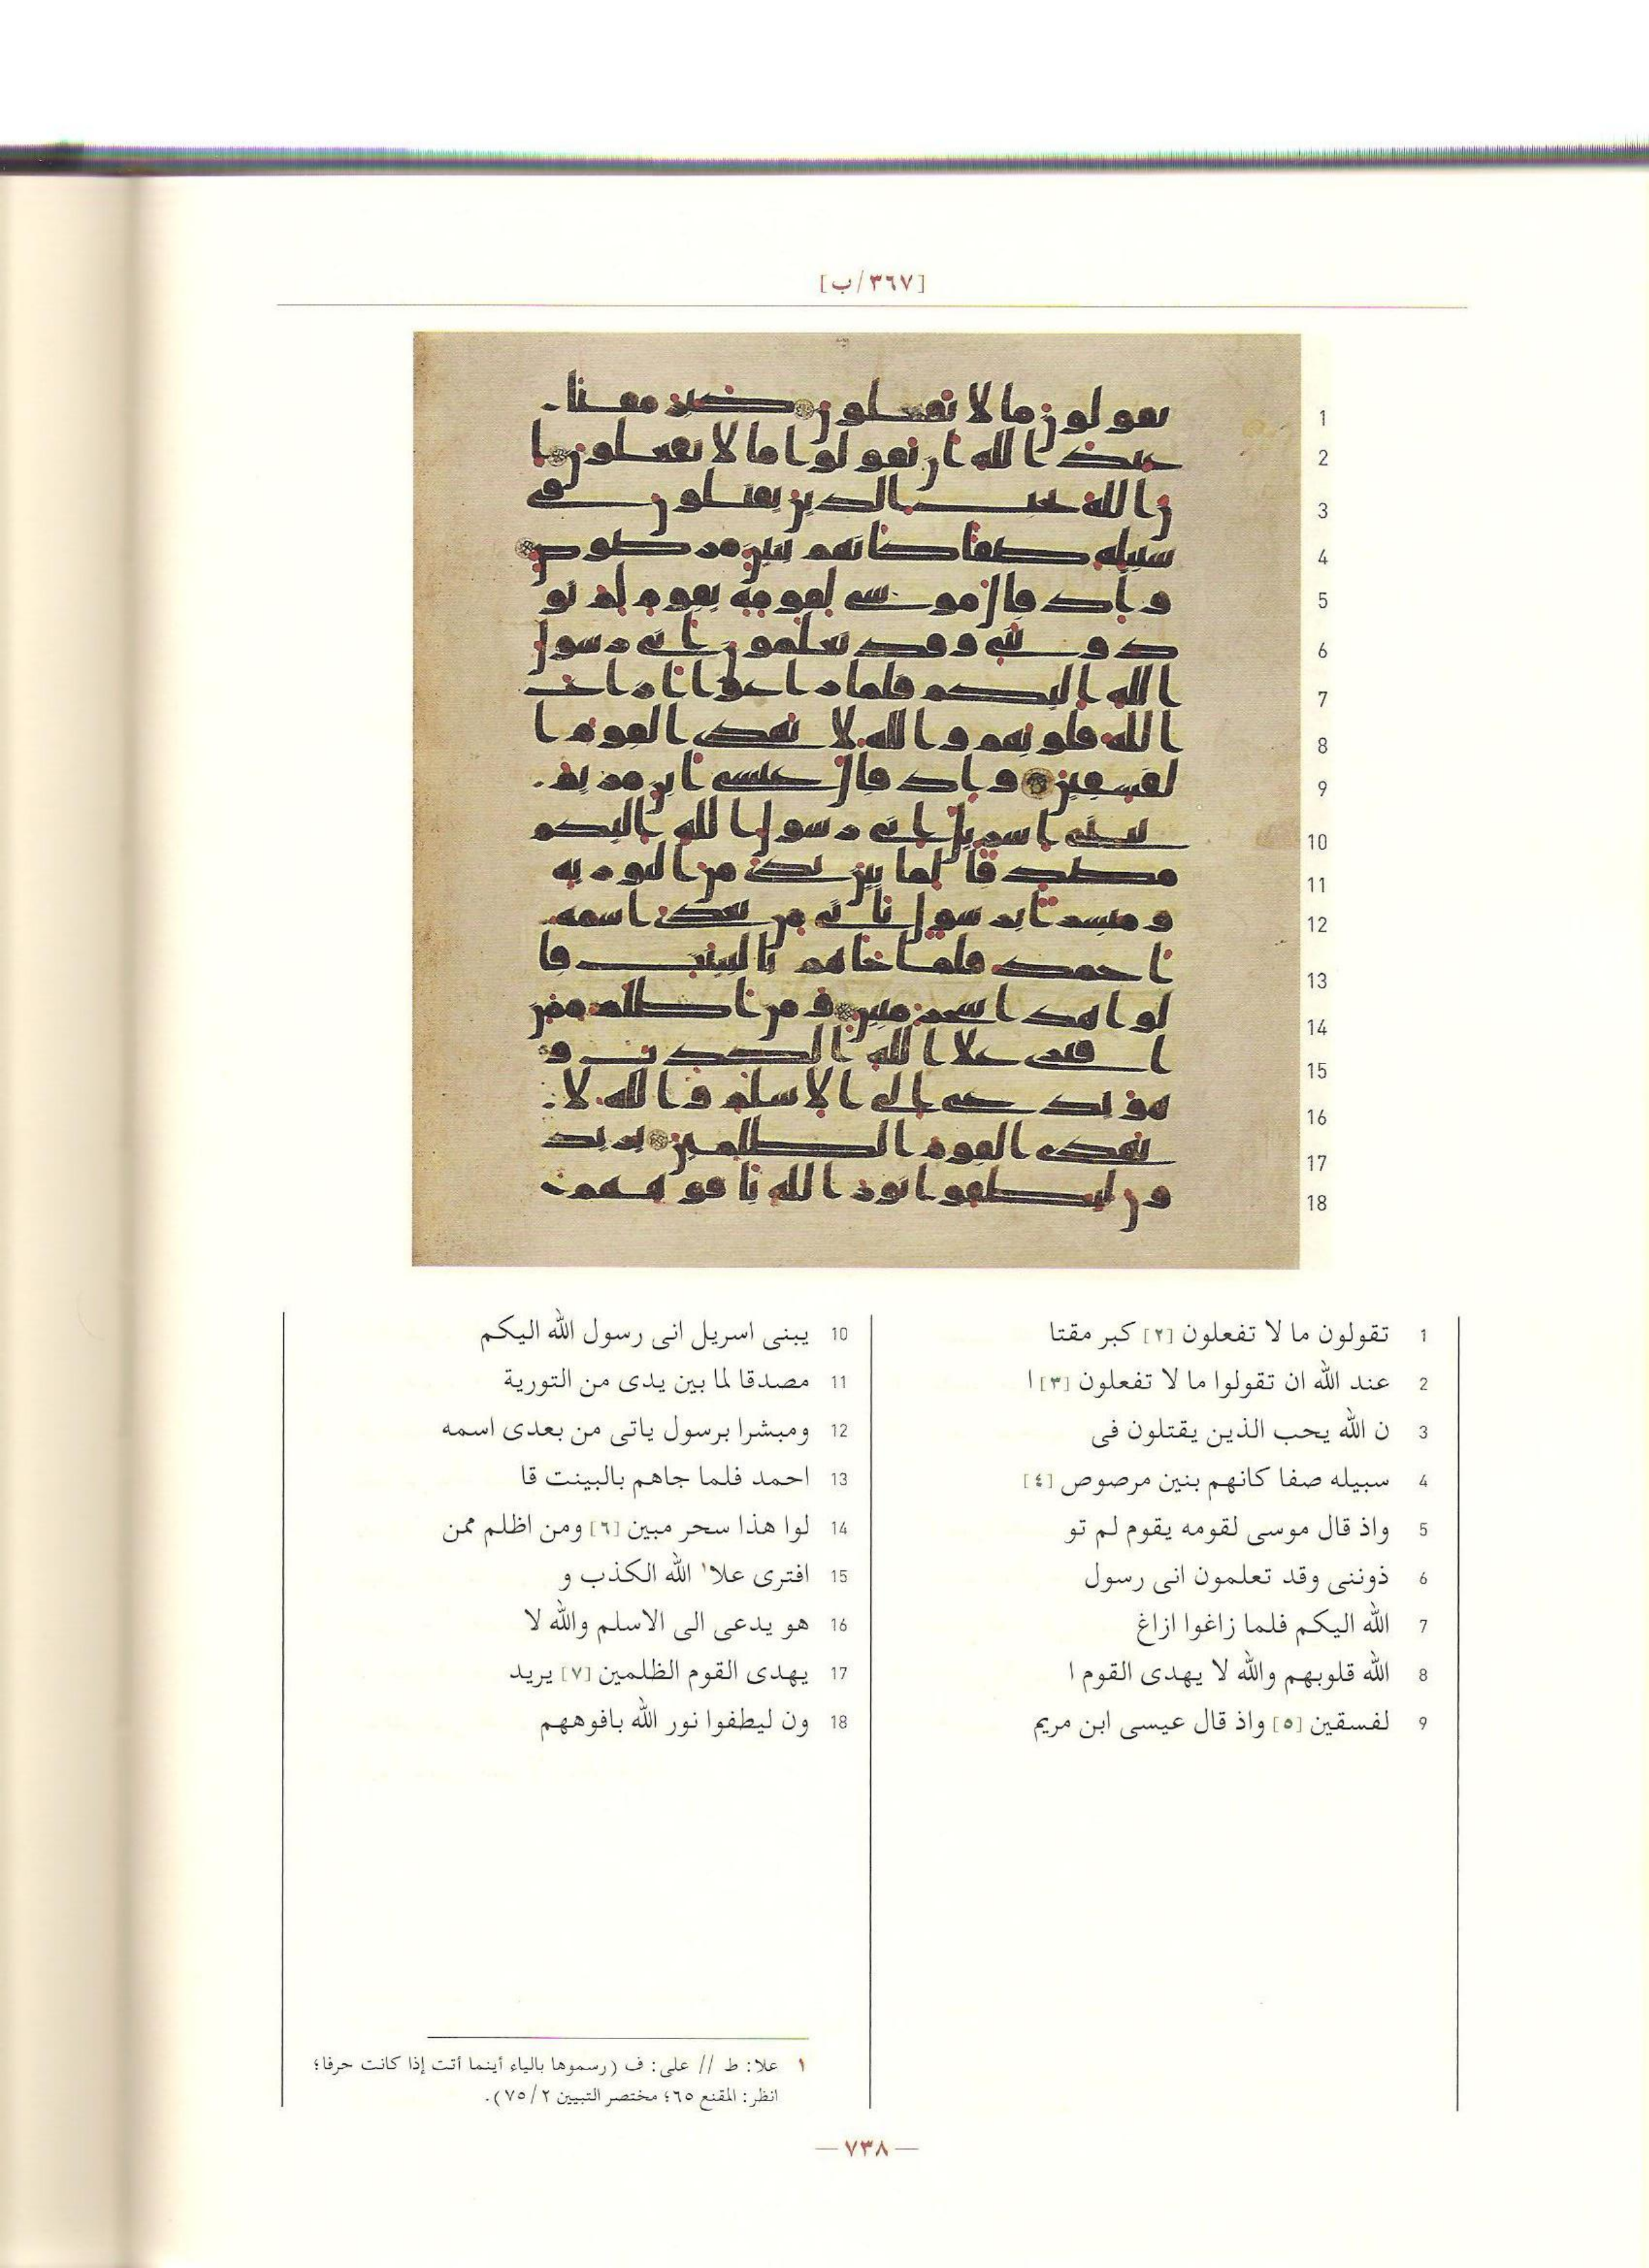 [٣٦٧/ب]
1 تقولون ما لا تفعلون [٢] كبر مقتا
2 عند الله ان تقولوا ما لا تفعلون [٣] ا
3 ن الله يحب الذين يقتلون فى
4 سبيله صفا كانهم بنين مرصوص [٤]
5 واذ قال موسى لقومه يقوم لم تو
6 ذوننى وقد تعلمون انى رسول
7 الله اليكم فلما زاغوا ازاغ
8 الله قلوبهم والله لا يهدى القوم ا
9 لفسقين [٥] واذ قال عيسى ابن مريم
10 يبنى اسريل انى رسول الله اليكم
11 مصدقا لما بين يدى من التورية
12 ومبشرا برسول ياتى من بعدى اسمه
13 احمد فلما جاهم بالبينت قا
14 لوا هذا سحر مبين [٦] ومن اظلم ممن
15 افترى علا١ الله الكذب و
16 هو يدعى الى الاسلم والله لا
17 يهدى القوم الظلمين [٧] يريد
18 ون ليطفوا نور الله بافوههم
١ علا: ط // على: ف (رسموها بالياء أينما أتت إذا كانت حرفا؛
انظر: المقنع ٦٥؛ مختصر التبيين ٧٥/٢).
—٧٣٨—